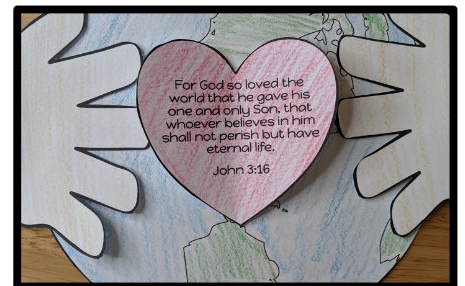 For God so loved the
world that he gave his
one and only Son, that
whoever believes in him
shall not perish but have
eternal life.
John 3:16